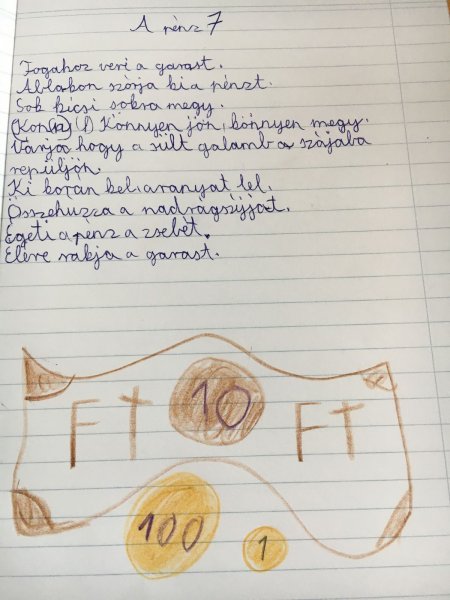 A pénz 7
Fogához veri a garast.
Ablakon szórja ki a pénzt.
Sok kicsi sokra megy.
Könnyen jön, könnyen megy.
Várja hogy a sült galamb a szájába
repüljön.
Ki korán kel aranyat lel.
Összehúzza a nadrágszíjját.
Égeti a pénz a zsebét.
Élére rakja a garast.
FT 10 FT
100 1